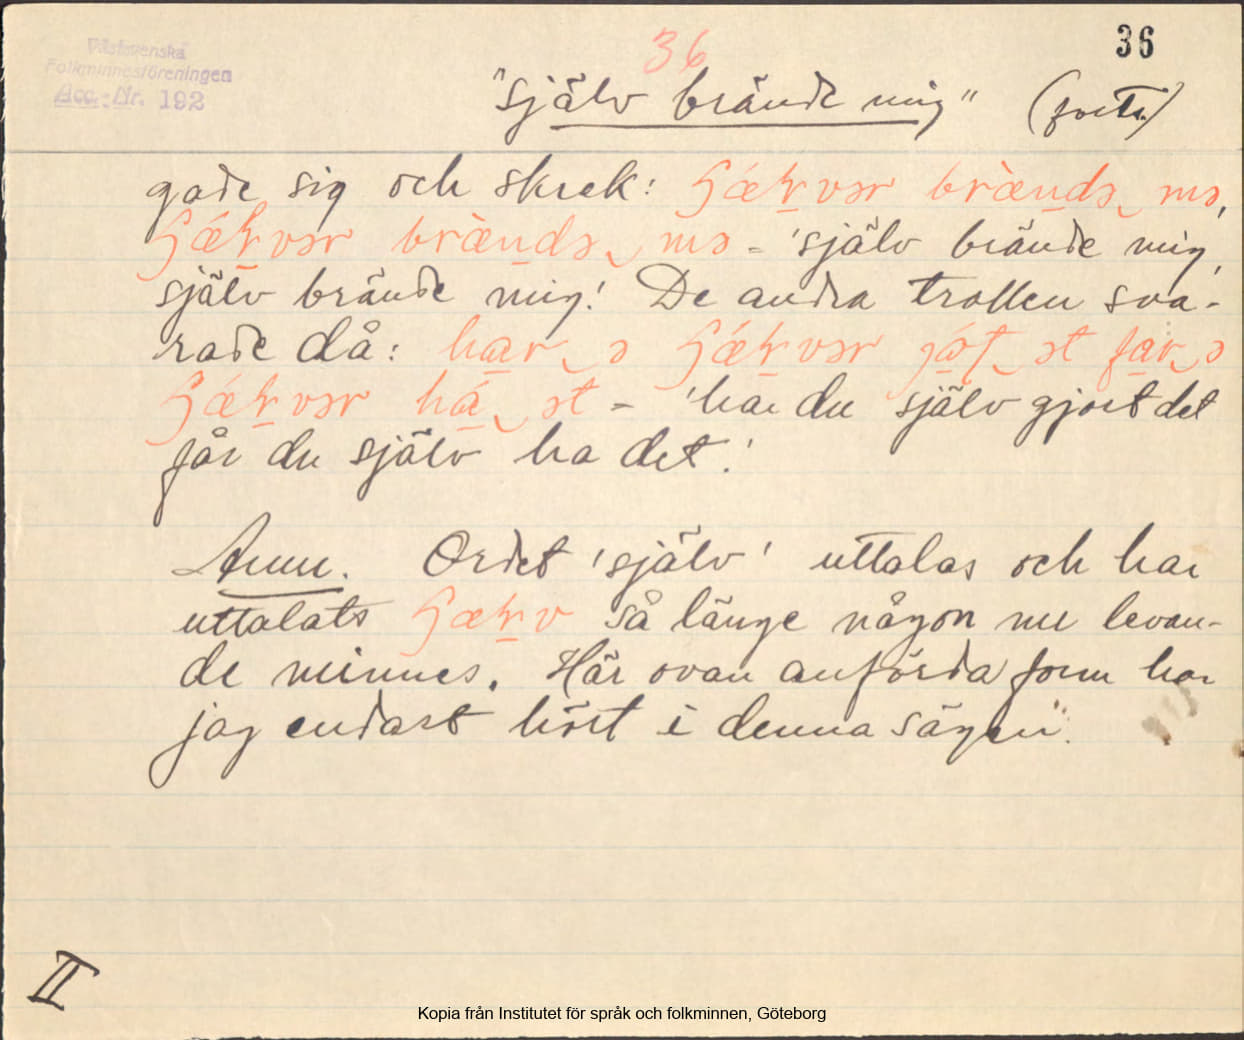 Västsvenska
Folkminnesföreningen
Acc.-Nr. 192
36
36
"själv brände mig" (forts.)
gade sig och skrek:
= 'själv brände mig,
själv brände mig! De andra trollen sva-
rade då:
= 'har du själv gjort det
får du själv ha det!'
Anm. Ordet 'själv' uttalas och har
uttalats så länge någon nu levan-
de minnes. Här ovan anförda form har
jag endast hört i denna sägen".
II
Kopia från Institutet för språk och folkminnen, Göteborg